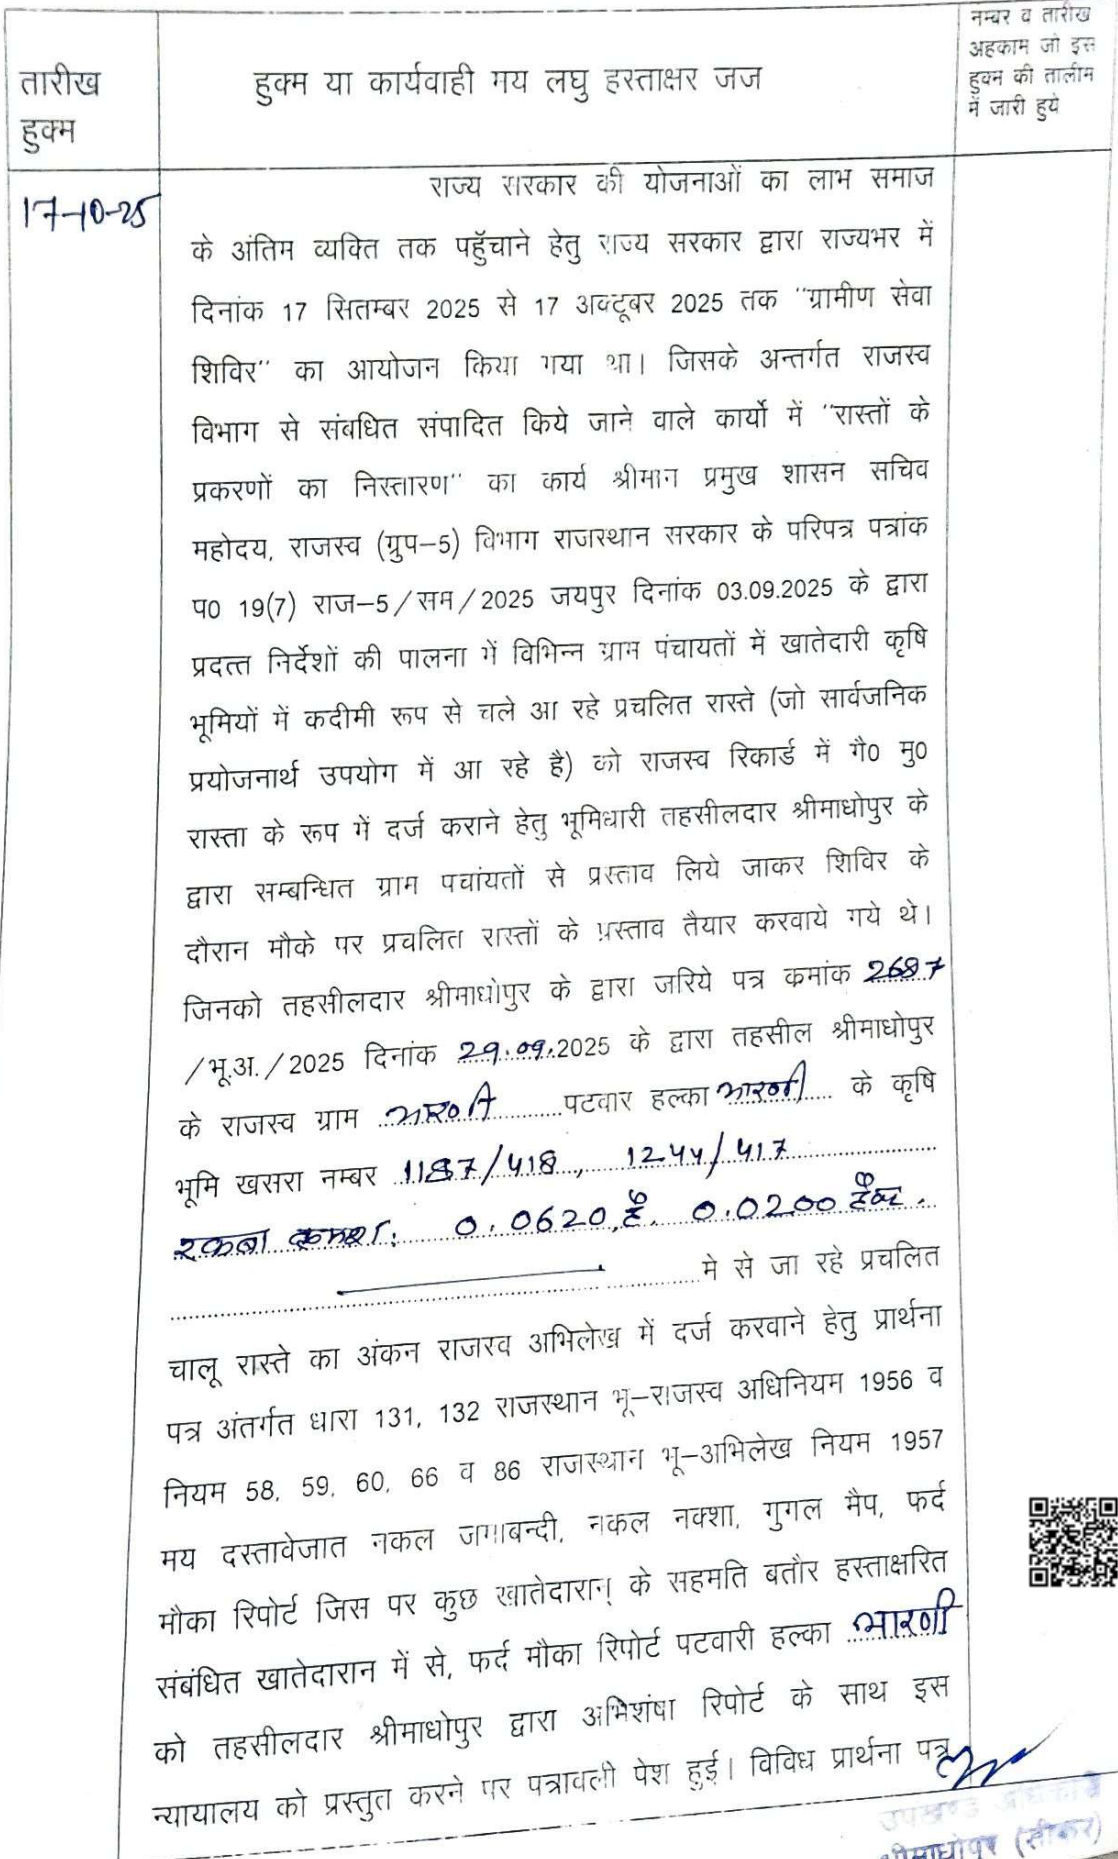 तारीख
हुक्म
हुक्म या कार्यवाही मय लघु हस्ताक्षर जज
नम्बर व तारीख
अहकाम जो इस
हुक्म की तालीम
में जारी हुये
17-10-25
राज्य सरकार की योजनाओं का लाभ समाज
के अंतिम व्यक्ति तक पहुँचाने हेतु राज्य सरकार द्वारा राज्यभर में
दिनांक 17 सितम्बर 2025 से 17 अक्टूबर 2025 तक "ग्रामीण सेवा
शिविर" का आयोजन किया गया था। जिसके अन्तर्गत राजस्व
विभाग से संबधित संपादित किये जाने वाले कार्यो में "रास्तों के
प्रकरणों का निस्तारण" का कार्य श्रीमान प्रमुख शासन सचिव
महोदय, राजस्व (ग्रुप–5) विभाग राजस्थान सरकार के परिपत्र पत्रांक
प0 19(7) राज–5/सम/2025 जयपुर दिनांक 03.09.2025 के द्वारा
प्रदत्त निर्देशों की पालना में विभिन्न ग्राम पंचायतों में खातेदारी कृषि
भूमियों में कदीमी रूप से चले आ रहे प्रचलित रास्ते (जो सार्वजनिक
प्रयोजनार्थ उपयोग में आ रहे है) को राजस्व रिकार्ड में गै0 मु0
रास्ता के रूप में दर्ज कराने हेतु भूमिधारी तहसीलदार श्रीमाधोपुर के
द्वारा सम्बन्धित ग्राम पचांयतों से प्रस्ताव लिये जाकर शिविर के
दौरान मौके पर प्रचलित रास्तों के प्रस्ताव तैयार करवाये गये थे।
जिनको तहसीलदार श्रीमाधोपुर के द्वारा जरिये पत्र कमांक 2687
/भू.अ./2025 दिनांक 29.09.2025 के द्वारा तहसील श्रीमाधोपुर
के राजस्व ग्राम भारणी पटवार हल्का भारणी के कृषि
भूमि खसरा नम्बर 1187/418, 1244/417
रकबा क्रमशः 0.0620 है. 0.0200 हैक्ट.
मे से जा रहे प्रचलित
चालू रास्ते का अंकन राजस्व अभिलेख में दर्ज करवाने हेतु प्रार्थना
पत्र अंतर्गत धारा 131, 132 राजस्थान भू–राजस्व अधिनियम 1956 व
नियम 58, 59, 60, 66 व 86 राजस्थान भू–अभिलेख नियम 1957
मय दस्तावेजात नकल जमाबन्दी, नकल नक्शा, गुगल मैप, फर्द
मौका रिपोर्ट जिस पर कुछ खातेदारान् के सहमति बतौर हस्ताक्षरित
संबंधित खातेदारान में से, फर्द मौका रिपोर्ट पटवारी हल्का भारणी
को तहसीलदार श्रीमाधोपुर द्वारा अभिशंषा रिपोर्ट के साथ इस
न्यायालय को प्रस्तुत करने पर पत्रावली पेश हुई। विविध प्रार्थना पत्र
उपखण्ड अधिकारी
श्रीमाधोपुर (सीकर)